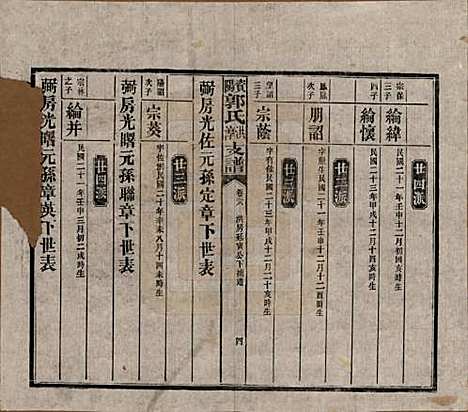 廿四派
宗保
三子
綸緯
民國二十一年壬申十二月初二亥時生
宗保
四子
綸懷
民國二十三年甲戌十二月十四亥時生
廿二派
次子
朋詔
民國二十一年壬申十二月十二酉時生
廿三派
三子
宗蔭
民國二十三年甲戌十二月二十亥時生
弼房光佐元孫定章下世表
郭氏
支譜
卷六
四
廿三派
次子
宗葵
民國二十年辛未八月十四未時生
弼房光曙元孫聯章下世表
廿四派
宗林
之子
綸井
民國二十一年壬申三月初二戌時生
弼房光曙元孫章英下世表